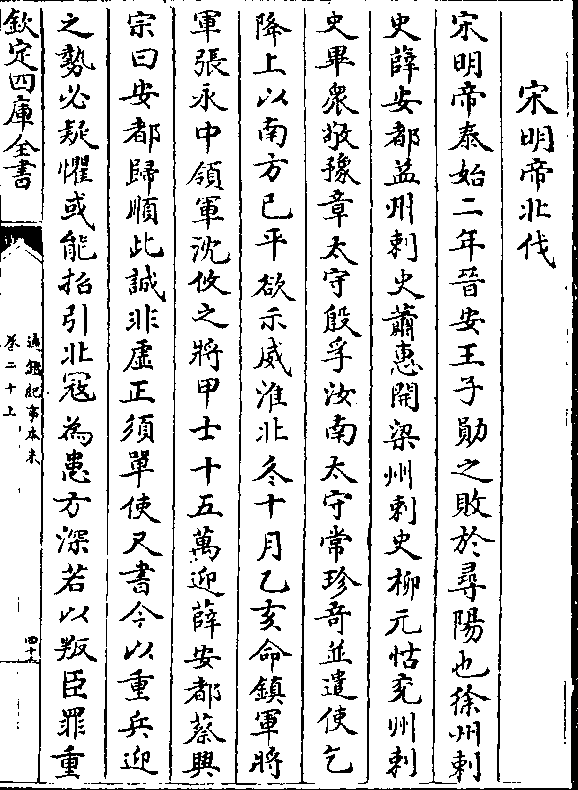 宋明帝北伐
宋明帝泰始二年晉安王子勛之敗於尋陽也徐州刺
史薛安都益州刺史蕭惠開梁州刺史柳元怙兗州刺
史畢衆敬豫章太守殷孚汝南太守常珍奇並遣使乞
降上以南方已平欲示威淮北冬十月乙亥命鎮軍將
軍張永中領軍沈攸之將甲士十五萬迎薛安都蔡興
宗曰安都歸順此誠非虛正須單使尺書今以重兵迎
之勢必疑懼或能招引北寇為患方深若以叛臣罪重
欽定四庫全書
通鑑紀事本末
卷二十上